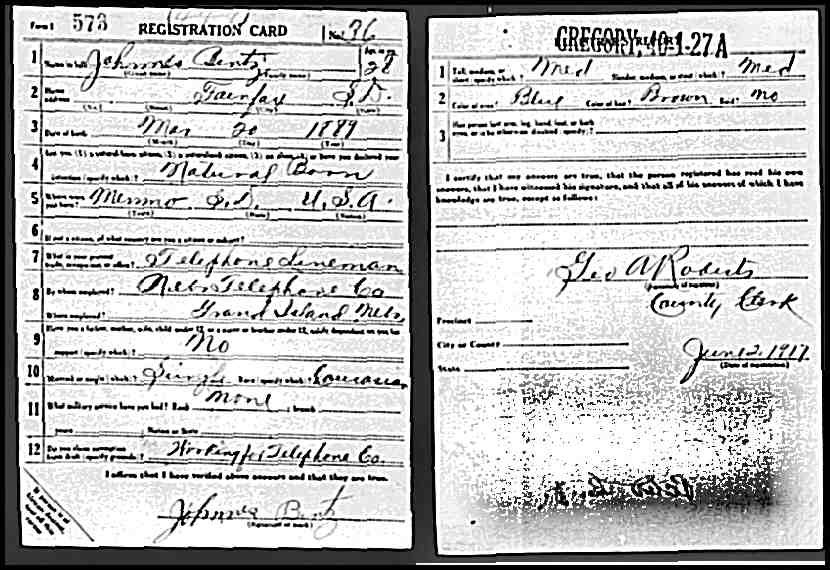 Form 1 573 REGISTRATION CARD No. 36
1 Name in full Johannes Bentz Age, in yrs. 28
(Given name) (Family name)
2 Home address Fairfax S.D.
(No.) (Street) (City) (State)
3 Date of birth Mar 20 1889
(Month) (Day) (Year)
4 Are you (1) a natural born citizen, (2) a naturalized citizen, (3) an alien, (4) or have you declared your
intention (specify which)? Natural Born
5 Where were you born? Menno S.D. U.S.A.
(Town) (State) (Nation)
6 If not a citizen, of what country are you a citizen or subject?
7 What is your present trade, occupation, or office? Telephone Lineman
8 By whom employed? Nebr Telephone Co
Where employed? Grand Island Nebr
9 Have you a father, mother, wife, child under 12, or a sister or brother under 12, solely dependent on you for
support (specify which)? No
10 Married or single (which)? Single Race (specify which)? Caucasian
11 What military service have you had? Rank None ; branch
years ; Nation or State
12 Do you claim exemption from draft (specify grounds)? Working for Telephone Co.
I affirm that I have verified above answers and that they are true.
Johannes Bentz
(Signature or mark)
GREGORY, 40-1-27 A
1 Tall, medium, or short (specify which)? Med Slender, medium, or stout (which)? Med
2 Color of eyes? Blue Color of hair? Brown Bald? No
3 Has person lost arm, leg, hand, foot, or both
eyes, or is he otherwise disabled (specify)?
I certify that my answers are true, that the person registered has read his own
answers, that I have witnessed his signature, and that all of his answers of which I have
knowledge are true, except as follows:
Geo A Roberts
(Signature of registrar)
County Clerk
Precinct
City or County
State
June 2, 1917
(Date of registration)